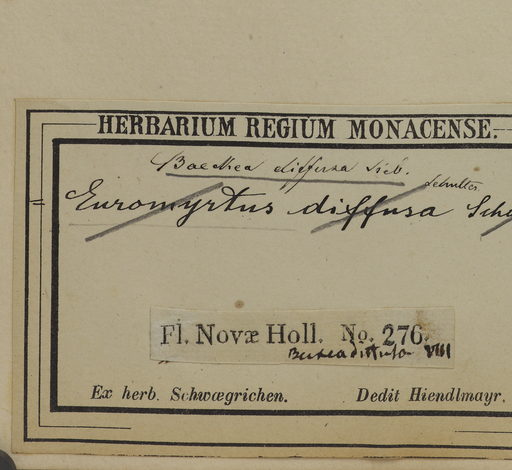 HERBARIUM REGIUM MONACENSE.
Baeckea diffusa Sieb.
Schultes
= Euromyrtus diffusa Scha
Fl. Novæ Holl. No. 276.
Beckea diffusa VIII
Ex herb. Schwægrichen. Dedit Hiendlmayr.